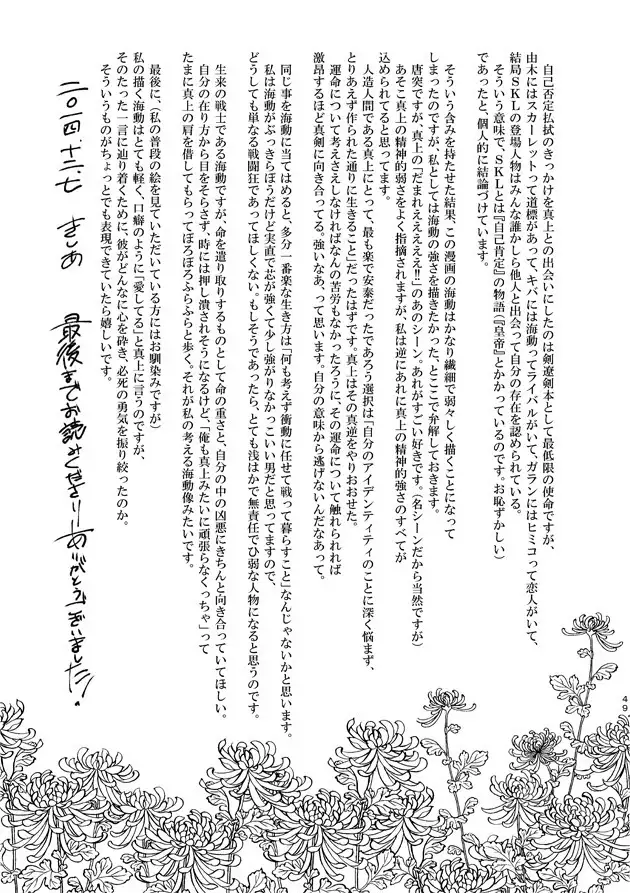 自己否定払拭のきっかけを真上との出会いにしたのは剣遼剣本として最低限の使命ですが、
由木にはスカーレットって道標があって、キバには海動ってライバルがいて、ガランにはヒミコって恋人がいて、
結局ＳＫＬの登場人物はみんな誰かしら他人と出会って自分の存在を認められている。
そういう意味で、ＳＫＬとは『自己肯定』の物語（『皇帝』とかかっているのです。お恥ずかしい）
であったと、個人的に結論づけています。
そういう含みを持たせた結果、この漫画の海動はかなり繊細で弱々しく描くことになって
しまったのですが、私としては海動の強さを描きたかった、とここで弁解しておきます。
唐突ですが、真上の「だまれえええええ!!」のあのシーン。あれがすごい好きです。（名シーンだから当然ですが）
あそこ真上の精神的弱さをよく指摘されますが、私は逆にあれに真上の精神的強さのすべてが
込められてると思ってます。
人造人間である真上にとって、最も楽で安泰だったであろう選択は「自分のアイデンティティのことに深く悩まず、
とりあえず作られた通りに生きること」だったはずです。真上はその真逆をやりおおせた。
運命について考えさえしなければなんの苦労もなかったろうに、その運命について触れられれば
激昂するほど真剣に向き合ってる。強いなあ、って思います。自分の意味から逃げないんだなあって。
同じ事を海動に当てはめると、多分一番楽な生き方は「何も考えず衝動に任せて戦って暮らすこと」なんじゃないかと思います。
私は海動がぶっきらぼうだけど実直で芯が強くて少し強がりなかっこいい男だと思ってますので、
どうしても単なる戦闘狂であってほしくない。もしそうであったら、とても浅はかで無責任でひ弱な人物になると思うのです。
生来の戦士である海動ですが、命を遣り取りするものとして命の重さと、自分の中の凶悪にきちんと向き合っていてほしい。
自分の在り方から目をそらさず、時には押し潰されそうになるけど、「俺も真上みたいに頑張らなくっちゃ」って
たまに真上の肩を借してもらってぼろぼろふらふらと歩く。それが私の考える海動像みたいです。
最後に、（私の普段の絵を見ていただいている方にはお馴染みですが）
私の描く海動はとても軽く、口癖のように「愛してる」と真上に言うのですが、
そのたった一言に辿り着くために、彼がどんなに心を砕き、必死の勇気を振り絞ったのか。
そういうものがちょっとでも表現できていたら嬉しいです。
二〇一四、十二、七　きしめ
最後までお読みくださりありがとうございました!
49